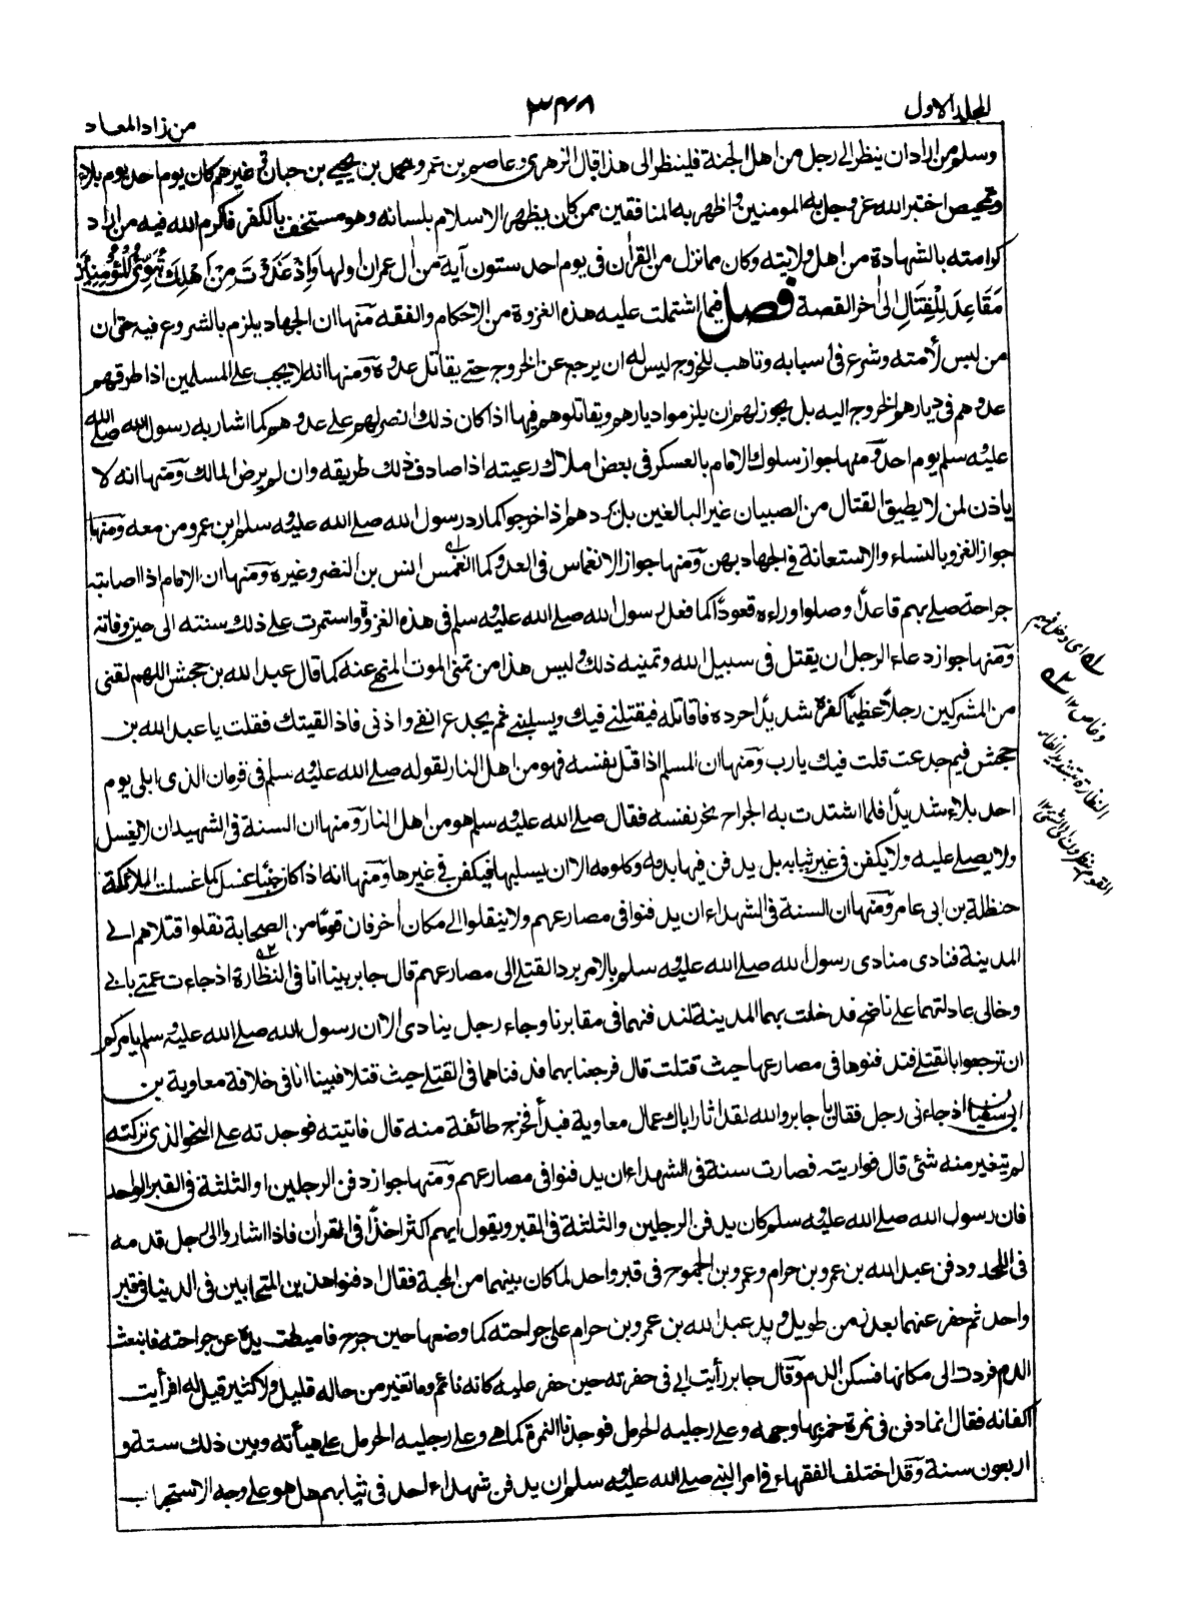 المجلد الاول
٣٤٨
من زاد المعاد
وسلم من اراد ان ينظر الى رجل من اهل الجنة فلينظر الى هذا قال الزهرى وعاصم بن عمر ومحمد بن يحيى بن حبان وغيرهم كان يوم احد يوم بلاء
وتمحيص اختبر الله عز وجل به المومنين واظهر به المنافقين ممن كان يظهر الاسلام بلسانه وهو مستخف بالكفر فاكرم الله فيه من اراد
كرامته بالشهادة من اهل ولايته وكان مما نزل من القرآن فى يوم احد ستون آية من ال عمران اولها وَاِذْ غَدَوْتَ مِنْ اَهْلِكَ تُبَوِّئُ الْمُؤْمِنِيْنَ
مَقَاعِدَ لِلْقِتَالِ الى اخر القصة فصل فيما اشتملت عليه هذه الغزوة من الاحكام والفقه منها ان الجهاد يلزم بالشروع فيه حتى ان
من لبس لأمته وشرع فى اسبابه وتاهب للخروج ليس له ان يرجع عن الخروج حتى يقاتل عدوه ومنها انه لا يجب على المسلمين اذا طرقهم
عدوهم فى ديارهم الخروج اليه بل يجوز لهم ان يلزموا ديارهم ويقاتلوهم فيها اذا كان ذلك انصر لهم على عدوهم كما اشار به رسول الله صلى الله
عليه وسلم يوم احد ومنها جواز سلوك الامام بالعسكر فى بعض املاك رعيته اذا صادف ذلك طريقه وان لم يرض المالك ومنها انه لا
ياذن لمن لا يطيق القتال من الصبيان غير البالغين بل يردهم اذا خرجوا كما رد رسول الله صلى الله عليه وسلم ابن عمر ومن معه ومنها
جواز الغزو بالنساء والاستعانة فى الجهاد بهن ومنها جواز الانغماس فى العدو كما انغمس انس بن النضر وغيره ومنها ان الامام اذا اصابته
جراحة صلى بهم قاعدا وصلوا وراءه قعودا كما فعل رسول الله صلى الله عليه وسلم فى هذه الغزوة واستمرت على ذلك سنته الى حين وفاته
ومنها جواز دعاء الرجل ان يقتل فى سبيل الله وتمنيه ذلك وليس هذا من تمنى الموت المنهى عنه كما قال عبد الله بن جحش اللهم لقنى
من المشركين رجلا عظيما كفره شديدا حرده فاقاتله فيقتلنى فيك ويسلبنى ثم يجدع انفى واذنى فاذا لقيتك فقلت يا عبد الله بن
جحش فيم جدعت قلت فيك يارب ومنها ان المسلم اذا قتل نفسه فهو من اهل النار لقوله صلى الله عليه وسلم فى قزمان الذى ابلى يوم
احد بلاء شديدا فلما اشتدت به الجراح نحر نفسه فقال صلى الله عليه وسلم هو من اهل النار ومنها ان السنة فى الشهيد ان لا يغسل
ولا يصلى عليه ولا يكفن فى غير ثيابه بل يدفن فيها بدمه وكلومه الا ان يسلبها فيكفن فى غيرها ومنها انه اذا كان جنبا غسل كما غسلت الملائكة
حنظلة بن ابى عامر ومنها ان السنة فى الشهداء ان يدفنوا فى مصارعهم ولا ينقلوا الى مكان آخر فان قوما من الصحابة نقلوا قتلاهم الى
المدينة فنادى منادى رسول الله صلى الله عليه وسلم بالامر برد القتلى الى مصارعهم قال جابر بينا انا فى النظارة اذ جاءت عمتى بابى
وخالى عادلتهما على ناضح فدخلت بهما المدينة لندفنهما فى مقابرنا وجاء رجل ينادى الا ان رسول الله صلى الله عليه وسلم يامركم
ان ترجعوا بالقتلى فتدفنوها فى مصارعها حيث قتلت قال فرجعنا بهما فدفناهما فى القتلى حيث قتلا فبينا انا فى خلافة معاوية بن
ابى سفيان اذ جاءنى رجل فقال يا جابر والله لقد اثار اباك عمال معاوية فبدأ فخرج طائفة منه قال فاتيته فوجدته على النحو الذى تركته
لم يتغير منه شئ قال فواريته فصارت سنة فى الشهداء ان يدفنوا فى مصارعهم ومنها جواز دفن الرجلين او الثلثة فى القبر الواحد
فان رسول الله صلى الله عليه وسلم كان يدفن الرجلين والثلثة فى القبر ويقول ايهم اكثر اخذا فى القرآن فاذا اشاروا الى رجل قدمه
فى اللحد ودفن عبد الله بن عمرو بن حرام وعمرو بن الجموح فى قبر واحد لما كان بينهما من المحبة فقال ادفنوا هذين المتحابين فى الدنيا فى قبر
واحد ثم حفر عنهما بعد زمن طويل ويد عبد الله بن عمرو بن حرام على جراحته كما وضعها حين جرح فاميطت يده عن جراحته فانبعث
الدم فردت الى مكانها فسكن الدم وقال جابر رأيت ابى فى حفرته حين حفر عليه كانه نائم وما تغير من حاله قليل ولا كثير قيل له افرأيت
اكفانه فقال انما دفن فى نمرة خمر بها وجهه وعلى رجليه الحرمل فوجدنا النمرة كما هى وعلى رجليه الحرمل على هيأته وبين ذلك ستة و
اربعون سنة وقد اختلف الفقهاء فى امر النبى صلى الله عليه وسلم ان يدفن شهداء احد فى ثيابهم هل هو على وجه الاستحباب
له اى دخل فيهم
وغاص ١٢ ٢ه
النظارة بتشديد الظاء
القوم ينظرون الى الشئ ١٢